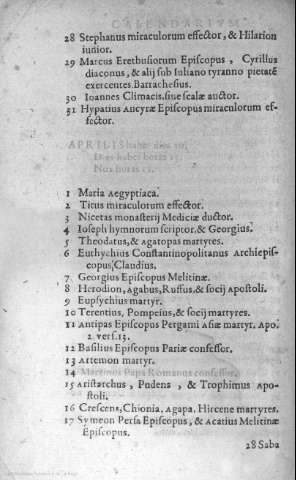 CALENDARIVM
28 Stephanus miraculorum effector, & Hilarion
iunior.
29 Marcus Erethusiorum Episcopus, Cyrillus
diaconus, & alij sub Iuliano tyranno pietatē
exercentes. Barrachesius.
30 Ioannes Climacis. siue scalæ auctor.
31 Hypatius Ancyræ Episcopus miraculorum ef-
fector.
APRILIS habet dies 30,
Dies habet horas 13.
Nox horas 11.
1 Maria Aegyptiaca.
2 Titus miraculorum effector.
3 Nicetas monasterij Mediciæ ductor.
4 Ioseph hymnorum scriptor, & Georgius.
5 Theodatus, & Agatopas martyres.
6 Euthychius Constantinopolitanus Archiepis-
copus, Claudius.
7 Georgius Episcopus Melitinæ.
8 Herodion, Agabus, Ruffus, & socij Apostoli.
9 Eupsychius martyr.
10 Terentius, Pompeius, & socij martyres.
11 Antipas Episcopus Pergami Asiæ martyr. Apo.
2. vers. 13.
12 Basilius Episcopus Pariæ confessor.
13 Artemon martyr.
14 Martinus Papa Romanus confessor.
15 Aristarchus, Pudens, & Trophimus Apo-
stoli.
16 Crescens, Chionia, Agapa, Hircene martyres.
17 Symeon Persa Episcopus, & Acatius Melitinæ
Episcopus.
28 Saba